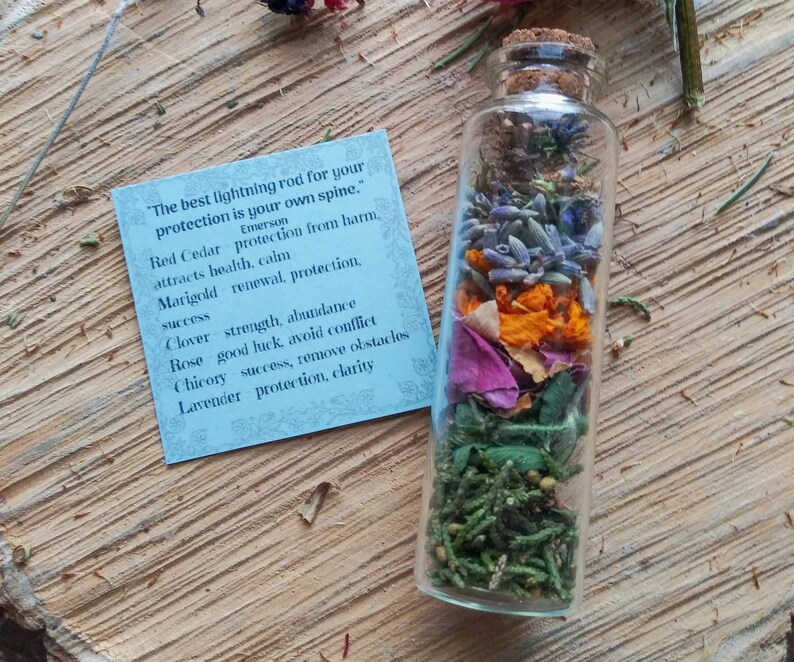 "The best lightning rod for your
protection is your own spine."
Emerson
Red Cedar - protection from harm,
attracts health, calm
Marigold - renewal, protection,
success
Clover - strength, abundance
Rose - good luck, avoid conflict
Chicory - success, remove obstacles
Lavender - protection, clarity